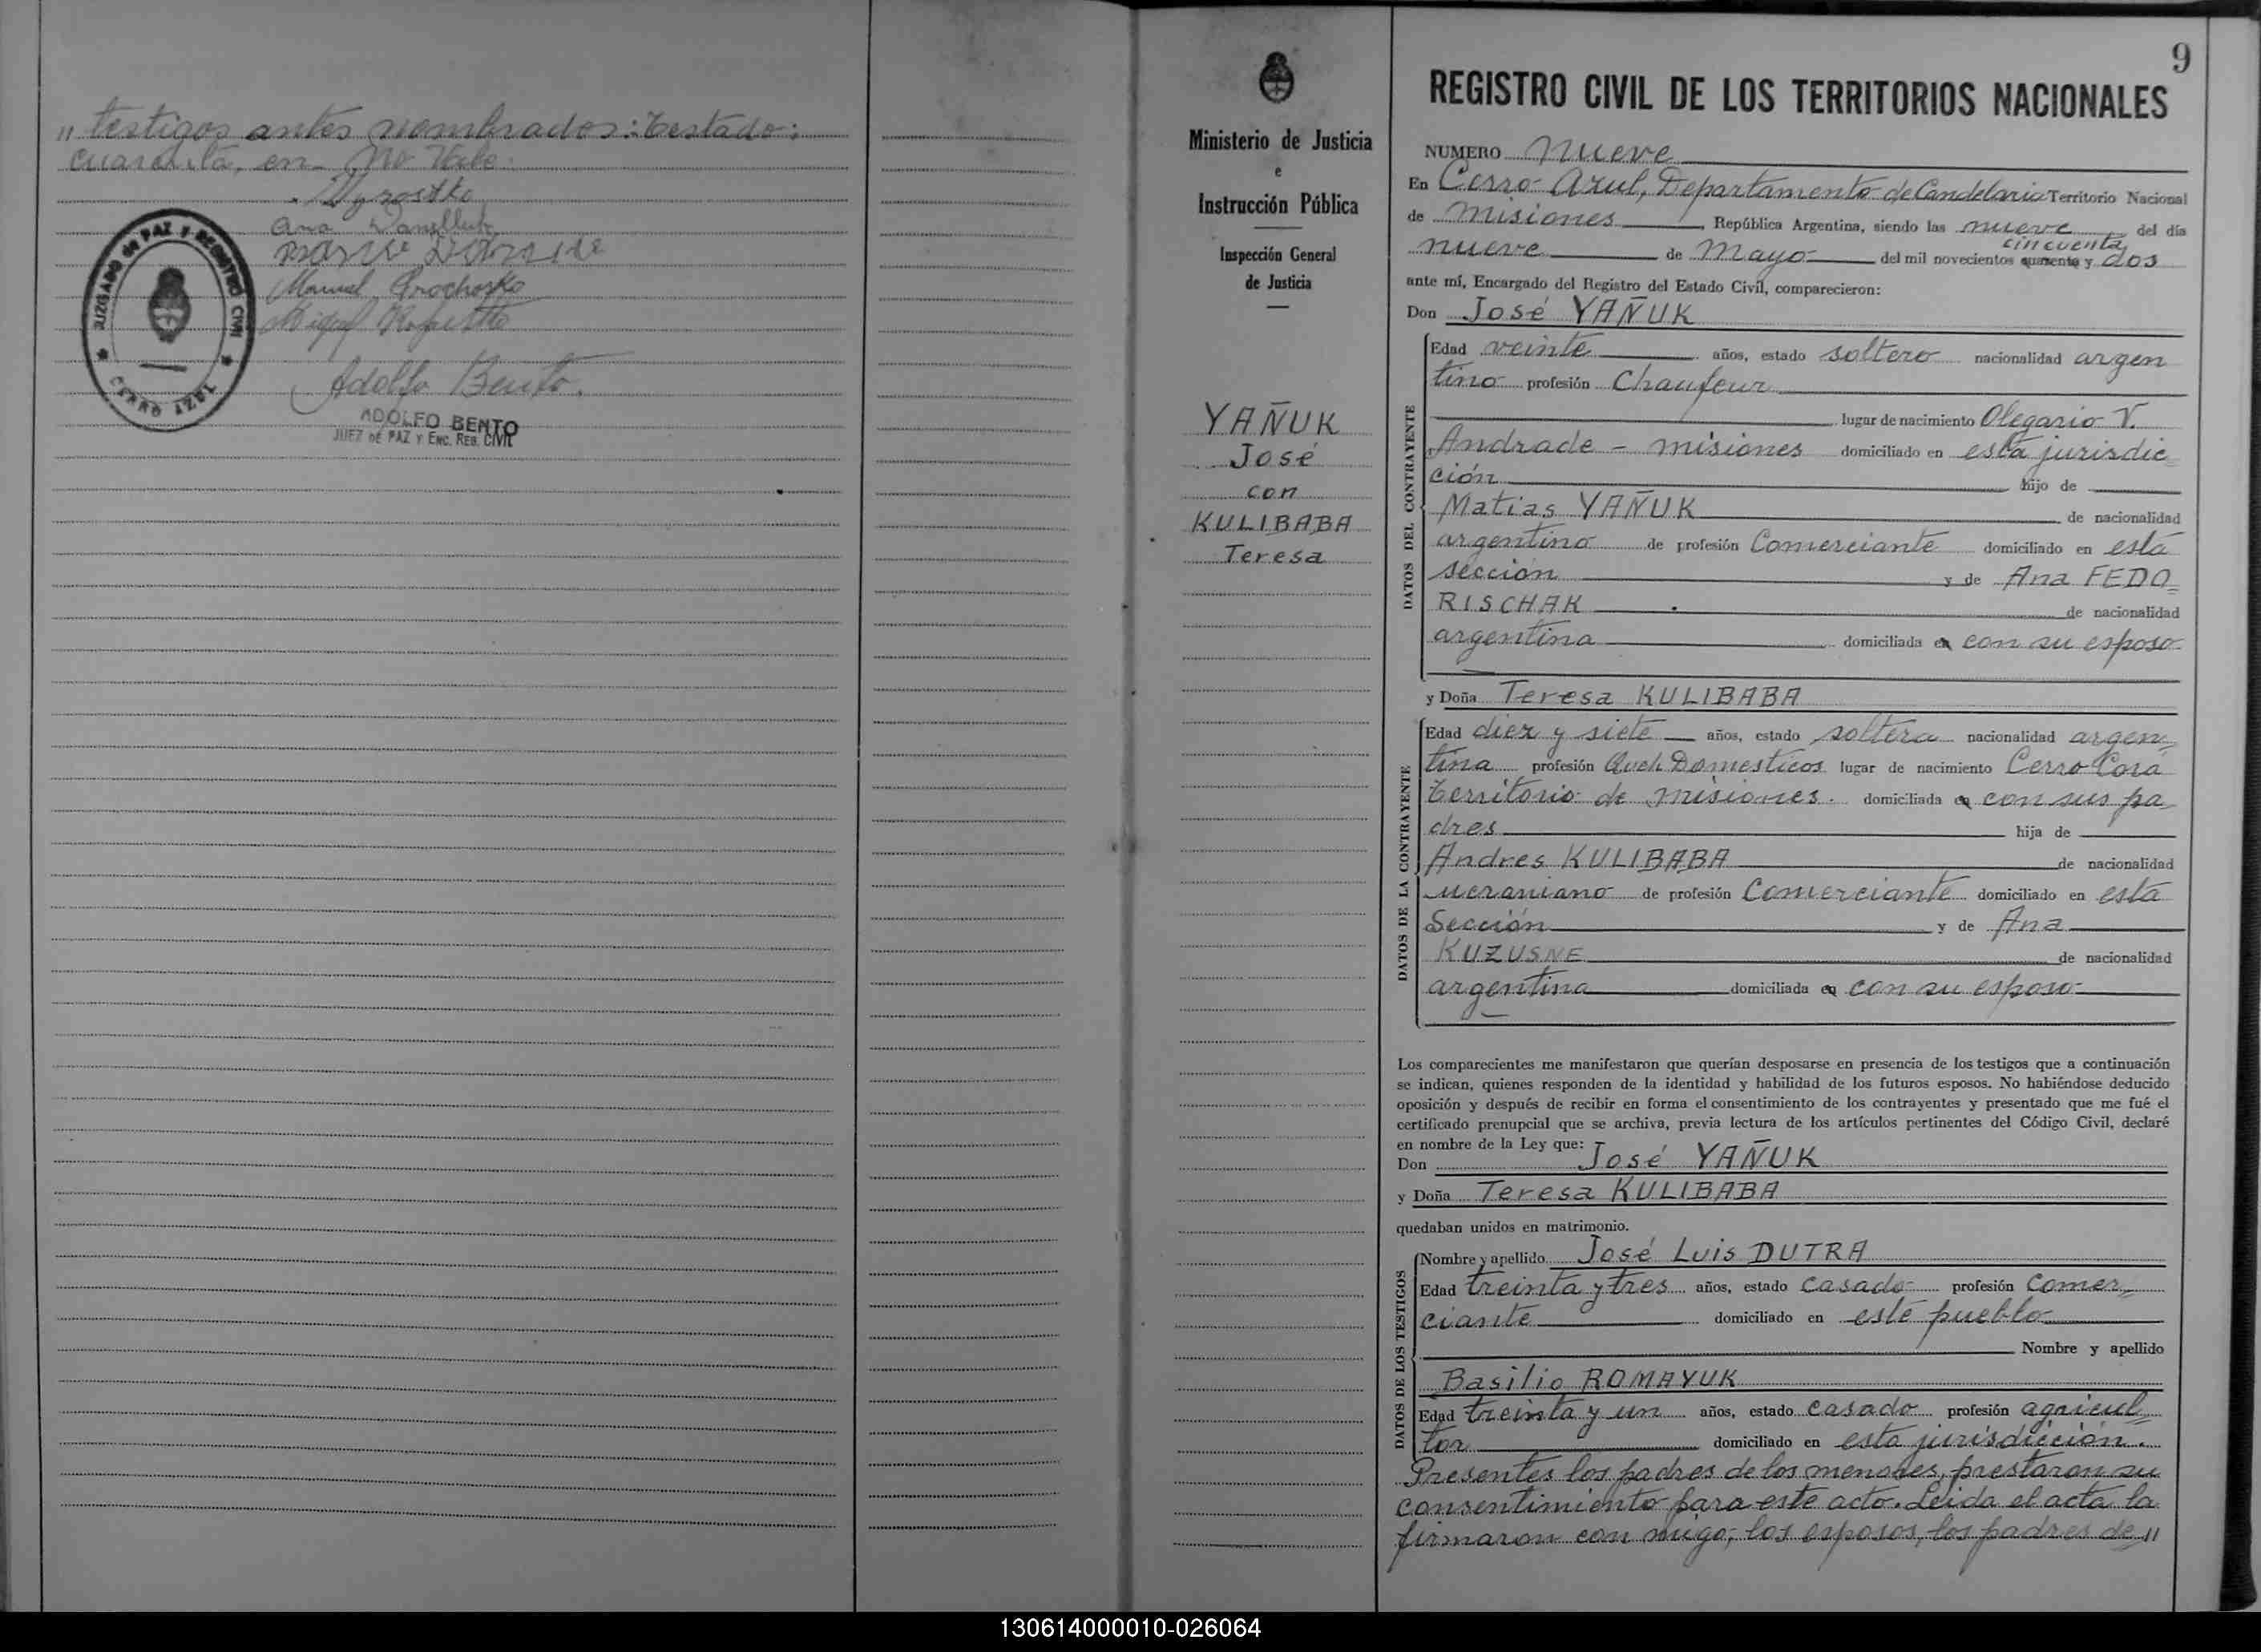 " testigos antes nombrados: Testado:
cuarenta, en- No Vale.
Ana
Manuel Prochosko
Miguel
Adolfo Bento.
ADOLFO BENTO
JUEZ DE PAZ Y ENC. REG. CIVIL
JUZGADO de PAZ Y REGISTRO CIVIL
★ CERRO AZUL ★
Ministerio de Justicia
e
Instrucción Pública
Inspección General
de Justicia
YAÑUK
José
con
KULIBABA
Teresa
9
REGISTRO CIVIL DE LOS TERRITORIOS NACIONALES
NUMERO Nueve
En Cerro Azul, Departamento de Candelaria Territorio Nacional
de Misiones, República Argentina, siendo las nueve del día
nueve de Mayo del mil novecientos cuarenta cincuenta y dos
ante mí, Encargado del Registro del Estado Civil, comparecieron:
Don José YAÑUK
DATOS DEL CONTRAYENTE
Edad veinte años, estado soltero nacionalidad argen
tino profesión Chaufeur
lugar de nacimiento Olegario V.
Andrade - Misiones domiciliado en esta jurisdic
ción hijo de
Matias YAÑUK de nacionalidad
argentino de profesión Comerciante domiciliado en esta
sección y de Ana FEDO=
RISCHAK de nacionalidad
argentina domiciliada en con su esposo
y Doña Teresa KULIBABA
DATOS DE LA CONTRAYENTE
Edad diez y siete años, estado soltera nacionalidad argen=
tina profesión Queh. Domesticos lugar de nacimiento Cerro Corá
territorio de Misiones. domiciliada en con sus pa=
dres hija de
Andres KULIBABA de nacionalidad
ucraniano de profesión Comerciante domiciliado en esta
Sección y de Ana
KUZUSNE de nacionalidad
argentina domiciliada en con su esposo
Los comparecientes me manifestaron que querían desposarse en presencia de los testigos que a continuación
se indican, quienes responden de la identidad y habilidad de los futuros esposos. No habiéndose deducido
oposición y después de recibir en forma el consentimiento de los contrayentes y presentado que me fué el
certificado prenupcial que se archiva, previa lectura de los artículos pertinentes del Código Civil, declaré
en nombre de la Ley que:
Don José YAÑUK
y Doña Teresa KULIBABA
quedaban unidos en matrimonio.
DATOS DE LOS TESTIGOS
Nombre y apellido José Luis DUTRA
Edad treinta y tres años, estado casado profesión comer=
ciante domiciliado en este pueblo
Nombre y apellido
Basilio ROMAYUK
Edad treinta y un años, estado casado profesión agricul=
tor domiciliado en esta jurisdicción.
Presentes los padres de los menores, prestaron su
consentimiento para este acto. Leida el acta la
firmaron con migo, los esposos, los padres de "
130614000010-026064